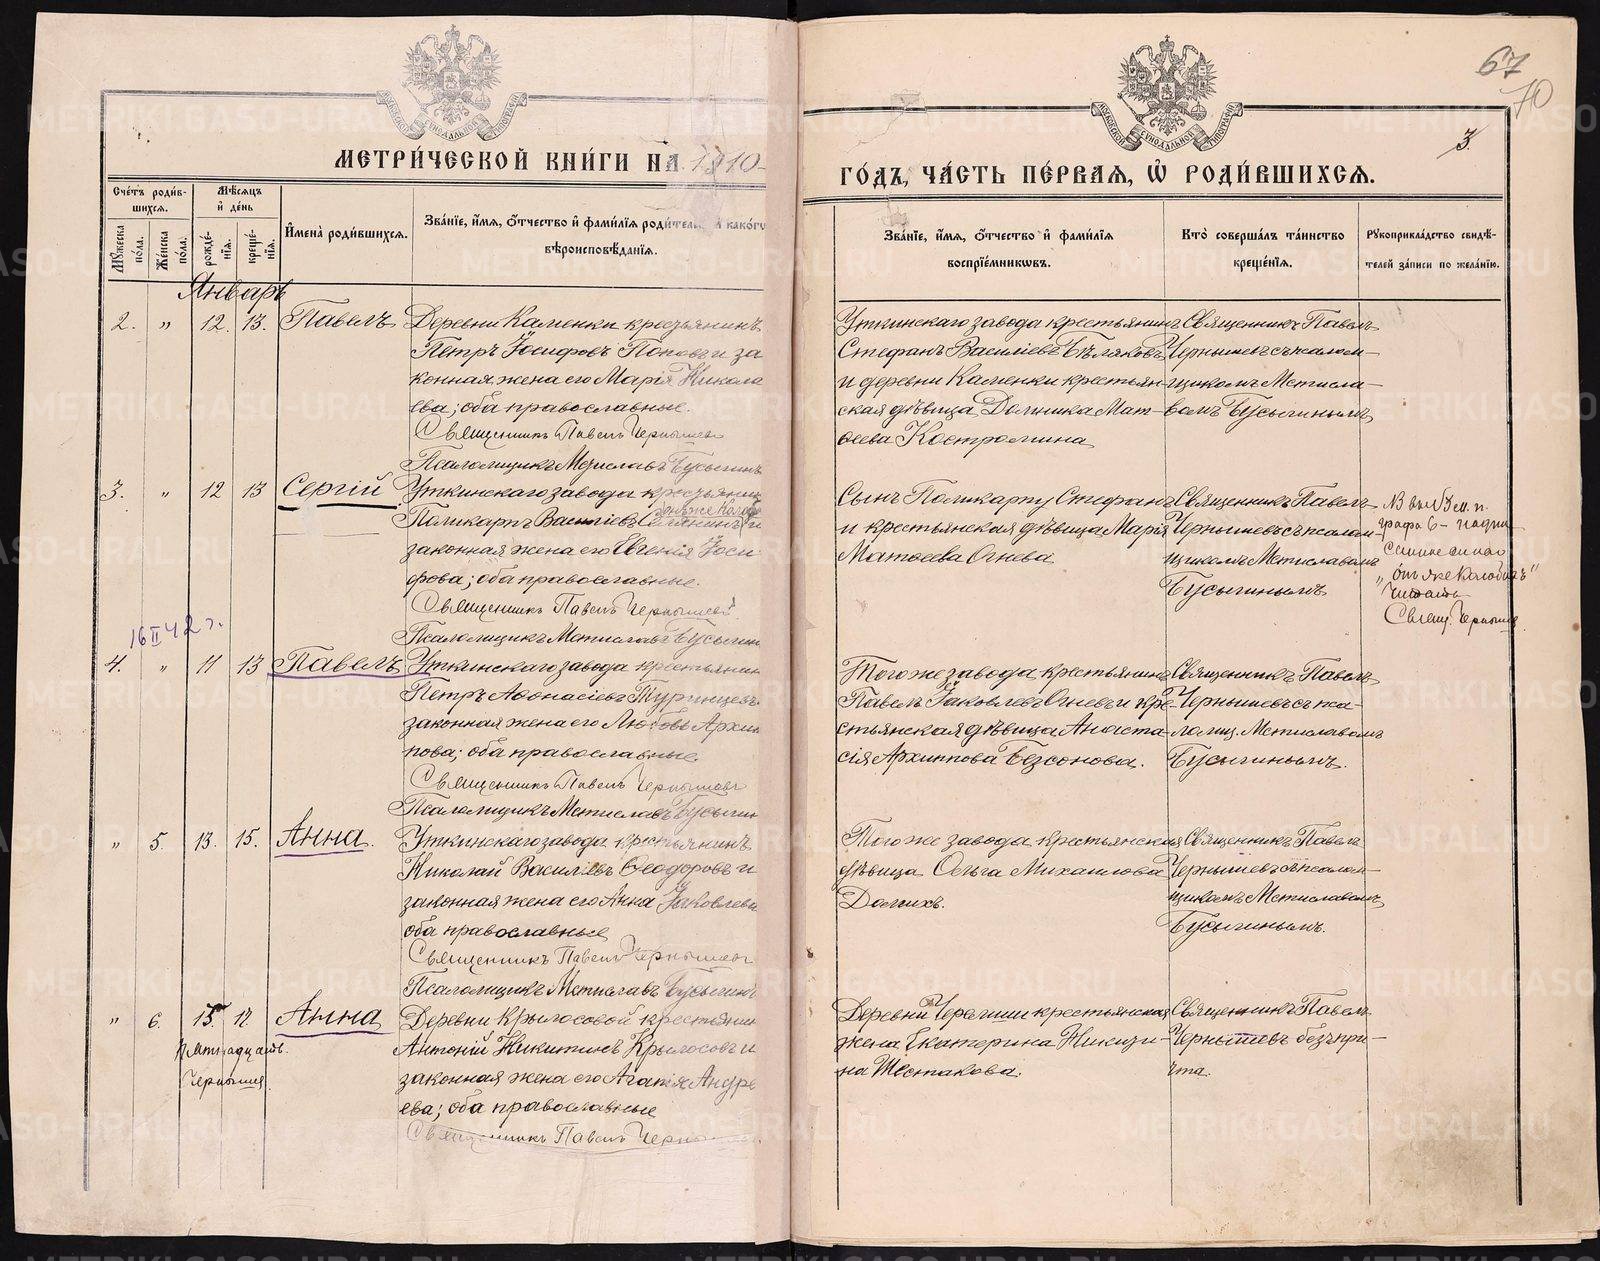 67
70
3.
МЕТРИ́ЧЕСКОЙ КНИ́ГИ НА 1910
ГО́ДЪ, ЧА́СТЬ ПЕ́РВАЯ, Ѿ РОДИ́ВШИХСЯ.
Сче́тъ роди́в-
шихся.
Мꙋ́жеска по́ла.
Же́нска по́ла.
Мѣ́сяцъ
и҆ де́нь
рожде́-
нїя.
креще́-
нїя.
И҆мена̀ роди́вшихся.
Зва́нїе, и҆́мя, ѻ҆́тчество и҆ фами́лїя роди́телей, и҆ како́гѡ
вѣроисповѣ́данїя.
Зва́нїе, и҆́мя, ѻ҆́тчество и҆ фами́лїя
воспрїе́мникѡвъ.
Кто̀ соверша́лъ та́инство
креще́нїя.
Рꙋкоприкла́дство свидѣ́-
телей за́писи по жела́нїю.
Январь
2. „ 12. 13. Павелъ
Деревни Каменки крестьянинъ
Петръ Іосифовъ Поповъ и за
конная жена его Марія Никола
ева; оба православные.
Священникъ Павелъ Чернышевъ
Псаломщикъ Мстиславъ Бусыгинъ
Уткинскаго завода крестьянинъ
Стефанъ Василіевъ Бѣляковъ
и деревни Каменки крестьян-
ская дѣвица Домника Мат-
ѳеева Костромина
Священникъ Павелъ
Чернышевъ съ псалом-
щикомъ Мстисла-
вомъ Бусыгинымъ
3. „ 12 13 Сергій
Уткинскаго завода крестьянин
Поликарпъ Василіевъ
законная жена его Евгенія Іоси
фова; оба православные.
Священникъ Павелъ Чернышевъ
Псаломщикъ Мстиславъ Бусыгин
Сынъ Поликарпу Стефанъ
и крестьянская дѣвица Марія
Матѳеева Огнева
Священникъ Павелъ
Чернышевъ съ псалом-
щикомъ Мстиславомъ
Бусыгинымъ
графа 6 - надпи
читать
Свящ. Чернышев
16 II 42 г.
4. „ 11 13 Павелъ
Уткинскаго завода крестьянин
Петръ Аѳонасіевъ Турынцевъ
законная жена его Любовь Архип
пова; оба православные
Священникъ Павелъ Чернышевъ
Псаломщикъ Мстиславъ Бусыгин
Того же завода крестьянинъ
Павелъ Іаковлевъ Огневъ и кре-
стьянская дѣвица Анаста-
сія Архиппова Безсонова.
Священникъ Павелъ
Чернышевъ съ пса-
ломщ. Мстиславомъ
Бусыгинымъ.
„ 5. 13. 15. Анна.
Уткинскаго завода крестьянинъ
Николай Василіевъ Ѳеодоровъ и
законная жена его Анна Іаковлева
оба православные
Священникъ Павелъ Чернышевъ
Псаломщикъ Мстиславъ Бусыгинъ
Того же завода крестьянская
дѣвица Ольга Михаилова
Долгихъ.
Священникъ Павелъ
Чернышевъ съ псалом-
щикомъ Мстиславомъ
Бусыгинымъ.
„ 6. 15. 17. Анна
Пятнадцать.
Чернышев
Деревни Крылосовой крестьянин
Антоній Никитинъ Крылосовъ и
законная жена его Агапія Андре
ева; оба православные
Священникъ Павелъ Чернышев
Деревни Черемши крестьянская
жена Екатерина
на Шестакова.
Священникъ Павелъ
Чернышевъ безъ при-
чта.
METRIKI.GASO-URAL.RU